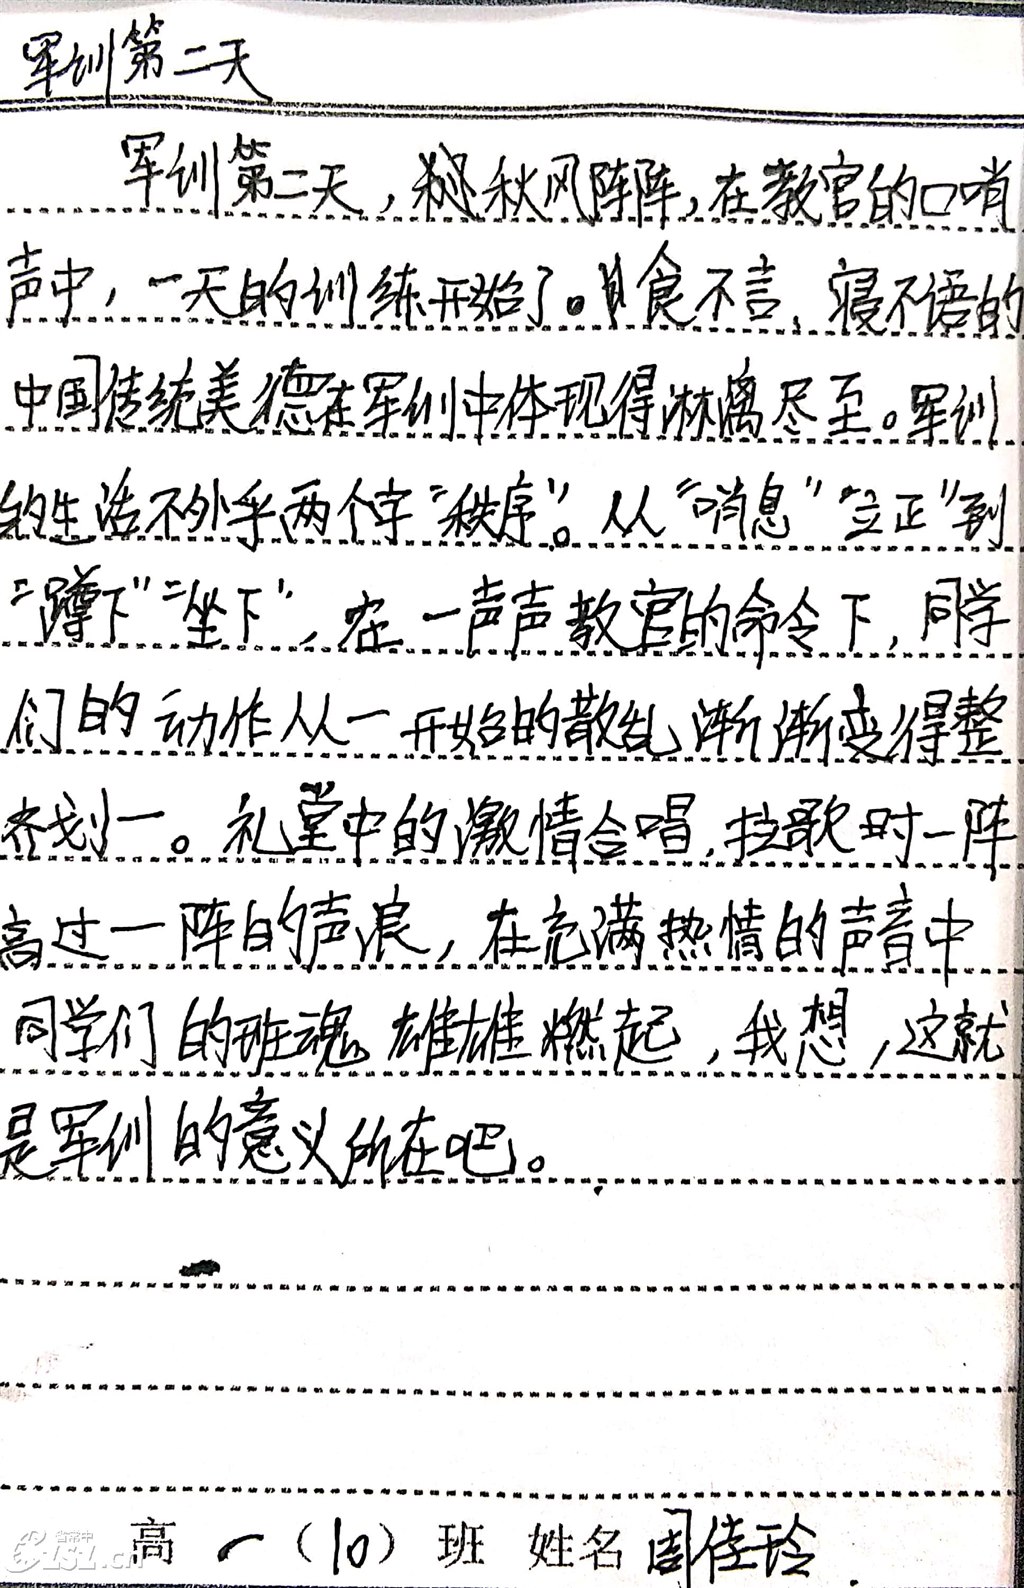 军训第二天
军训第二天，秋风阵阵，在教官的口哨
声中，一天的训练开始了。食不言、寝不语的
中国传统美德在军训中体现得淋漓尽至。军训
的生活不外乎两个字“秩序”。从“哨息”“立正”到
“蹲下”“坐下”，在一声声教官的命令下，同学
们的动作从一开始的散乱渐渐变得整
齐划一。礼堂中的激情合唱，拉歌时一阵
高过一阵的声浪，在充满热情的声音中
同学们的班魂雄雄燃起，我想，这就
是军训的意义所在吧。
高一（10）班 姓名 周佳玲
省常中
CZSZ.cn